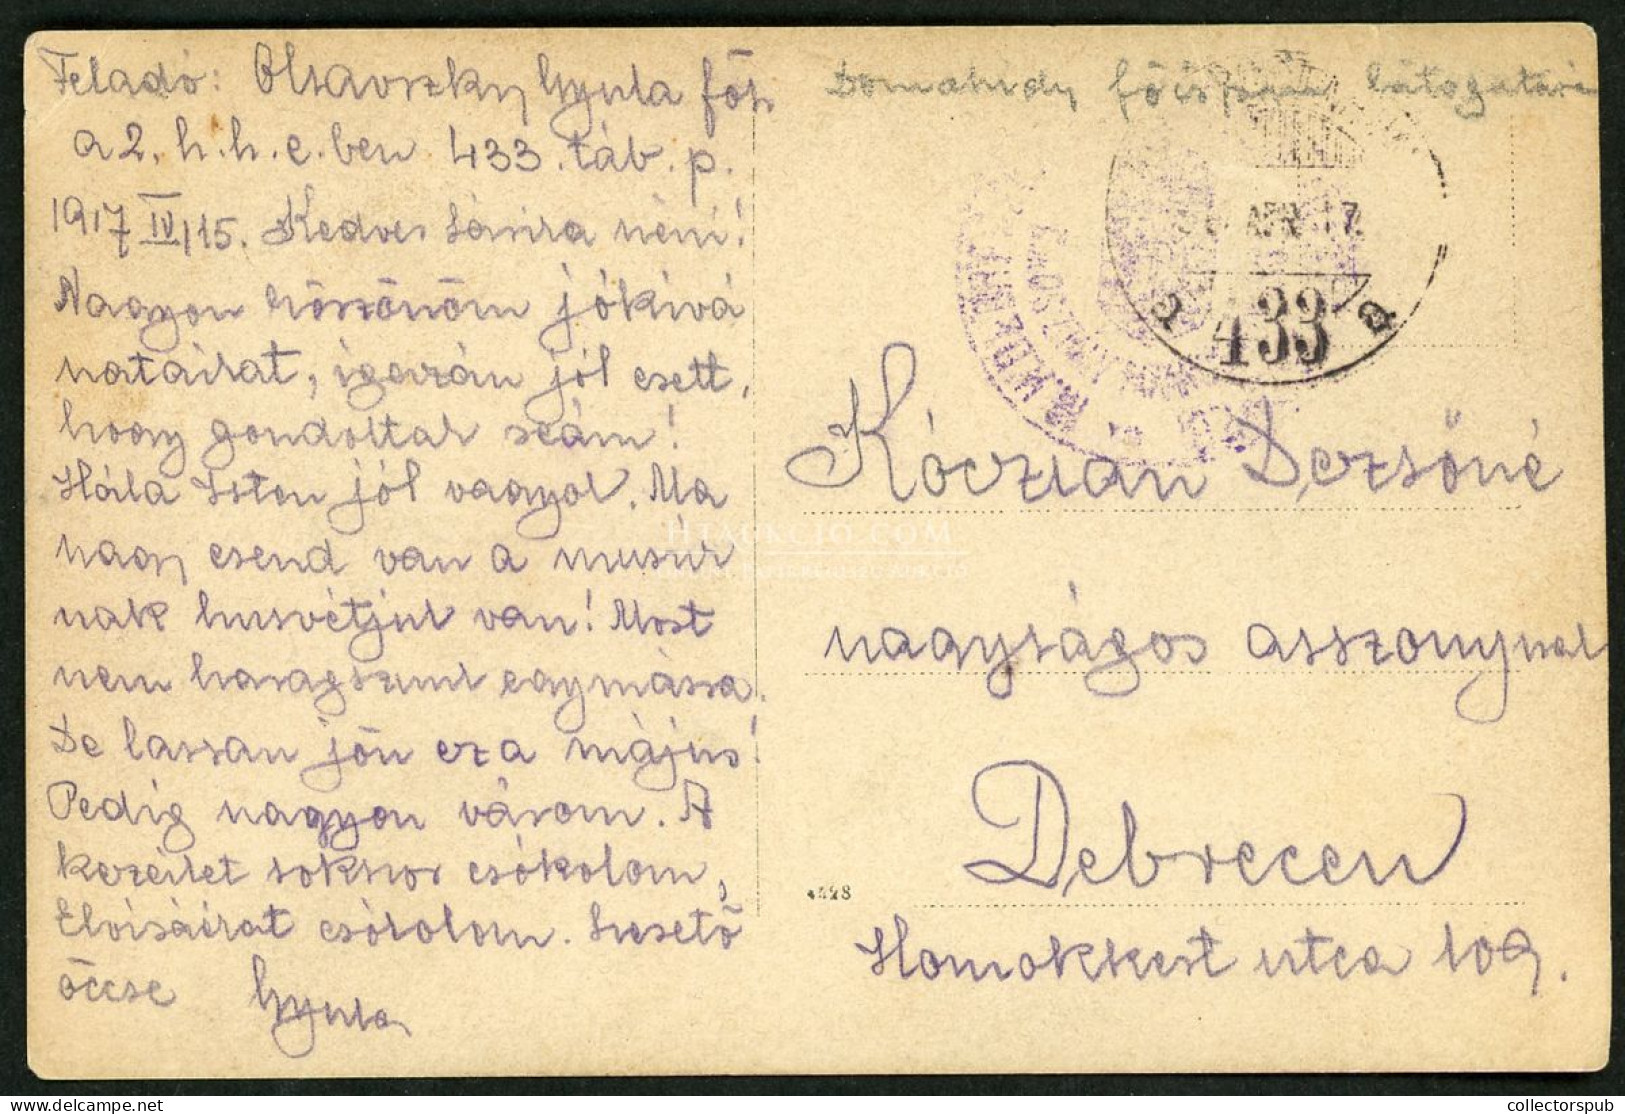 Feladó: Olsavszky Gyula főh
a 2. h. h. e. ben 433. táb. p.
1917 IV/15. Kedves Sárira néni!
Nagyon köszönöm jókivá
natairat, igazán jól esett,
hogy gondoltak reám!
Hála Isten jól vagyok. Ma
nagy csend van a muszur
nak husvétjuk van! Most
nem haragszunk egymásra.
De lassan jön ez a május!
Pedig nagyon várom. A
kezeiket sokszor csókolom,
csókolom. Szerető
öccse Gyula
Domahidy főispán látogatása
APR 17
433
a
Kóczián Dezsőné
nagyságos asszonynak
Debrecen
Homokkert utca 109.
4428
HTAUKCIO.COM
collectorspub